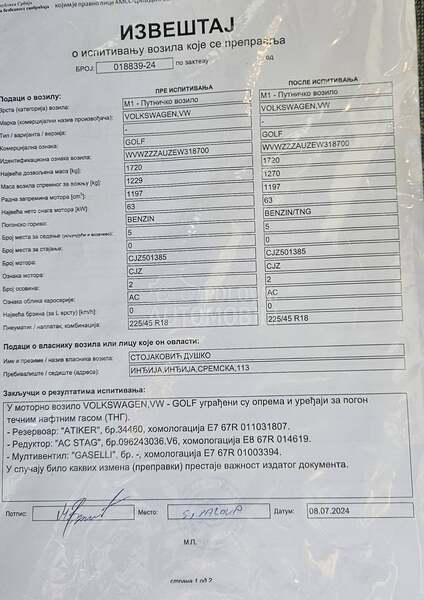 којим је правно лице АМСС-Центар за
ИЗВЕШТАЈ
о испитивању возила које се преправља
БРОЈ: 018839-24 по захтеву од
ПРЕ ИСПИТИВАЊА ПОСЛЕ ИСПИТИВАЊА
Подаци о возилу:
Врста (категорија) возила: M1 - Путничко возило M1 - Путничко возило
Марка (комерцијални назив произвођача): VOLKSWAGEN,VW VOLKSWAGEN,VW
Тип / варијанта / верзија: - -
Комерцијална ознака: GOLF GOLF
Идентификациона ознака возила: WVWZZZAUZEW318700 WVWZZZAUZEW318700
Највећа дозвољена маса [kg]: 1720 1720
Маса возила спремног за вожњу [kg]: 1229 1270
Радна запремина мотора [cm³]: 1197 1197
Највећа нето снага мотора [kW]: 63 63
Погонско гориво: BENZIN BENZIN/TNG
Број места за седење (укључујући и возачко): 5 5
Број места за стајање: 0 0
Број мотора: CJZ501385 CJZ501385
Ознака мотора: CJZ CJZ
Број осовина: 2 2
Ознака облика каросерије: AC AC
Највећа брзина (за L врсту) [km/h]: 0 0
Пнеуматик / наплатак, комбинација: 225/45 R18 225/45 R18
Подаци о власнику возила или лицу које он овласти:
Име и презиме / назив власника возила: СТОЈАКОВИЋ ДУШКО
Пребивалиште / седиште (адреса): ИНЂИЈА,ИНЂИЈА,СРЕМСКА,113
Закључци о резултатима испитивања:
У моторно возило VOLKSWAGEN,VW - GOLF уграђени су опрема и уређаји за погон
течним нафтним гасом (ТНГ).
- Резервоар: "ATIKER", бр.34460, хомологација E7 67R 011031807.
- Редуктор: "AC STAG", бр.096243036.V6, хомологација E8 67R 014619.
- Мултивентил: "GASELLI", бр. -, хомологација E7 67R 01003394.
У случају било каквих измена (преправки) престаје важност издатог документа.
Потпис: Место: Датум: 08.07.2024
М.П.
страна 1 од 2